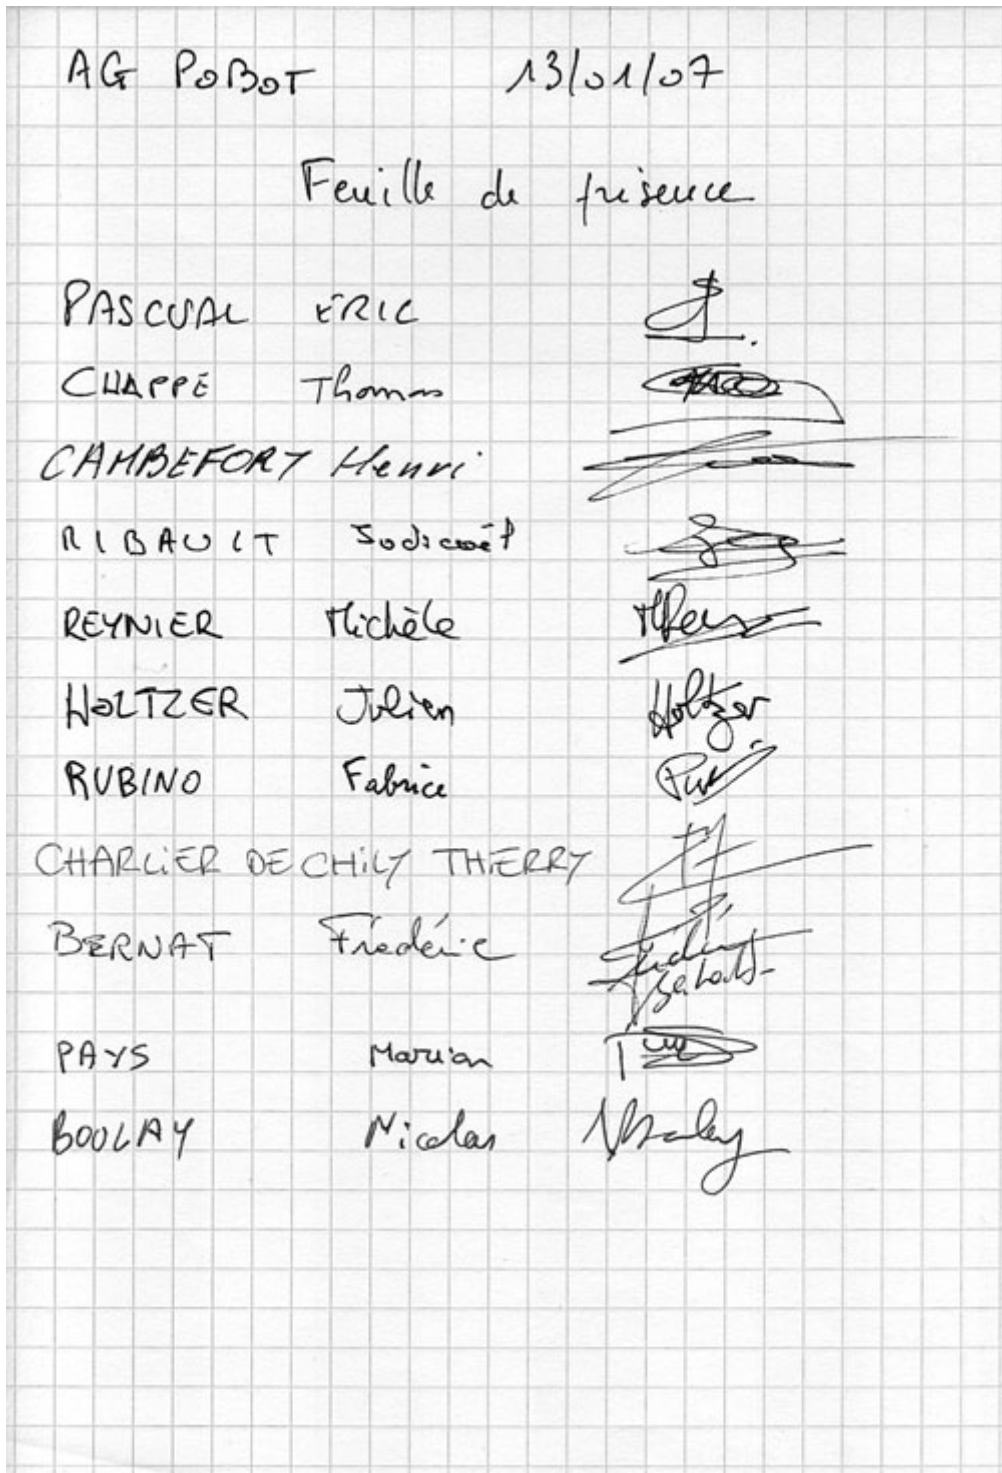 AG PoBoT 13/01/07
Feuille de présence
PASCUAL ERIC
CHAPPE Thomas
CAMBEFORT Henri
RIBAULT
REYNIER Michèle
HOLTZER Julien Holtzer
RUBINO Fabrice
CHARLIER DE CHILY THIERRY
BERNAT Frédéric
PAYS Marion
BOULAY Nicolas